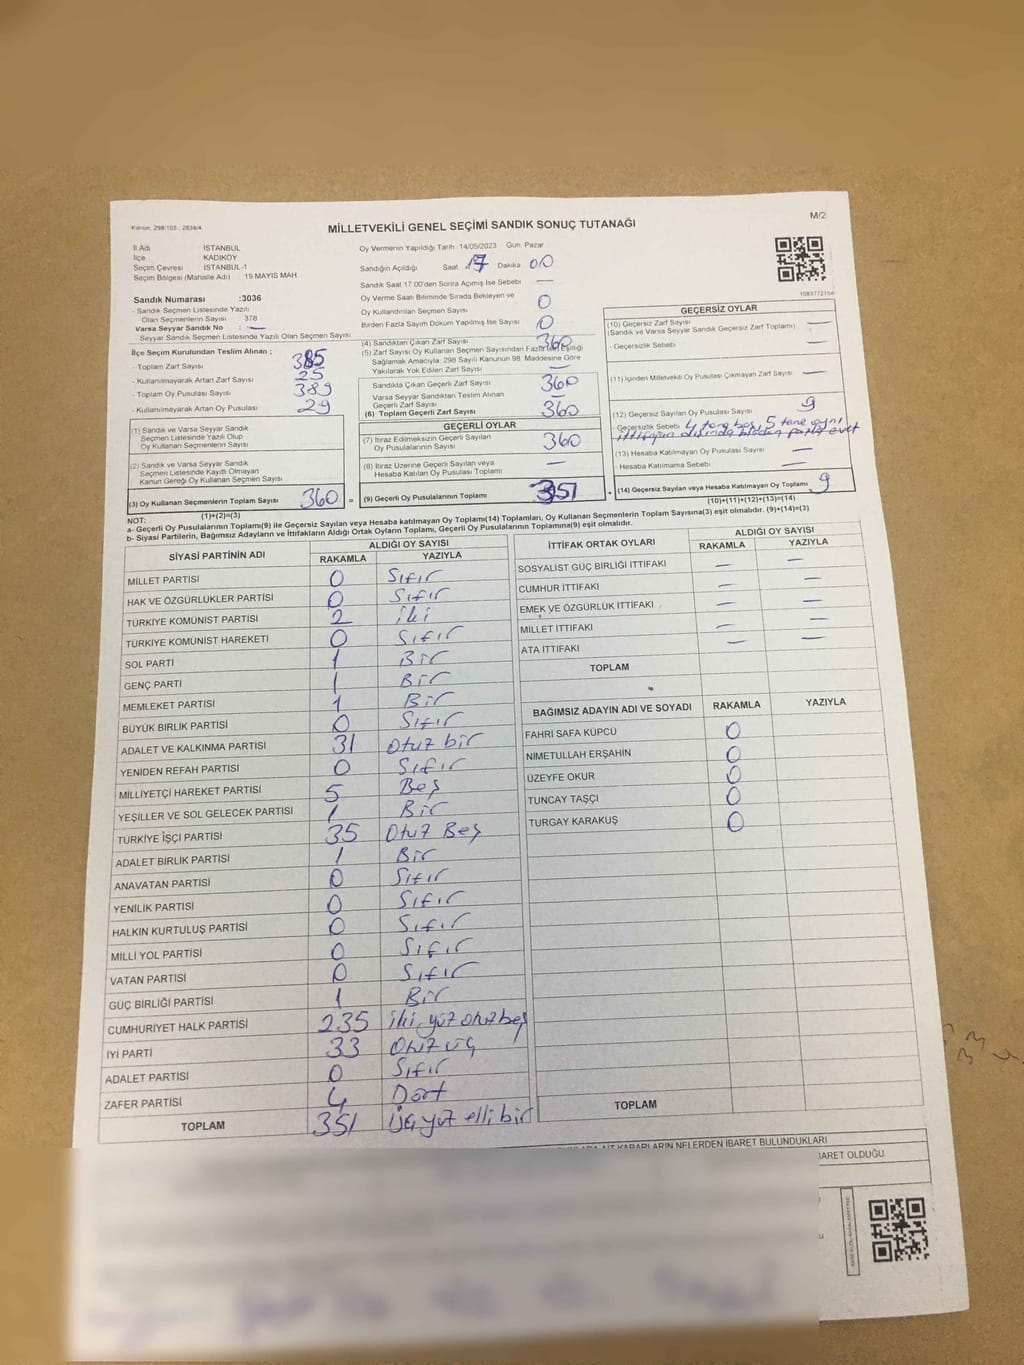 Kanun, 298:105 , 2839/4
MİLLETVEKİLİ GENEL SEÇİMİ SANDIK SONUÇ TUTANAĞI
M/2
İl Adı İSTANBUL
İlçe KADIKÖY
Seçim Çevresi İSTANBUL-1
Seçim Bölgesi (Mahalle Adı) 19 MAYIS MAH
Sandık Numarası :3036
- Sandık Seçmen Listesinde Yazılı
Olan Seçmenlerin Sayısı 378
Varsa Seyyar Sandık No : —
- Seyyar Sandık Seçmen Listesinde Yazılı Olan Seçmen Sayısı
İlçe Seçim Kurulundan Teslim Alınan ;
- Toplam Zarf Sayısı 385
- Kullanılmayarak Artan Zarf Sayısı 25
- Toplam Oy Pusulası Sayısı 389
- Kullanılmayarak Artan Oy Pusulası 29
(1) Sandık ve Varsa Seyyar Sandık
Seçmen Listesinde Yazılı Olup
Oy Kullanan Seçmenlerin Sayısı
(2) Sandık ve Varsa Seyyar Sandık
Seçmen Listesinde Kayıtlı Olmayan
Kanun Gereği Oy Kullanan Seçmen Sayısı
(3) Oy Kullanan Seçmenlerin Toplam Sayısı 360 =
(1)+(2)=(3)
Oy Vermenin Yapıldığı Tarih :14/05/2023 Gün: Pazar
Sandığın Açıldığı Saat: 17 Dakika 00
Sandık Saat 17.00'den Sonra Açılmış İse Sebebi —
Oy Verme Saati Bitiminde Sırada Bekleyen ve
Oy Kullandırılan Seçmen Sayısı 0
Birden Fazla Sayım Döküm Yapılmış İse Sayısı 0
(4) Sandıktan Çıkan Zarf Sayısı 360
(5) Zarf Sayısı Oy Kullanan Seçmen Sayısından Fazla İse, Eşitliği
Sağlamak Amacıyla, 298 Sayılı Kanunun 98. Maddesine Göre
Yakılarak Yok Edilen Zarf Sayısı —
Sandıkta Çıkan Geçerli Zarf Sayısı 360
Varsa Seyyar Sandıktan Teslim Alınan
Geçerli Zarf Sayısı —
(6) Toplam Geçerli Zarf Sayısı 360
GEÇERLİ OYLAR
(7) İtiraz Edilmeksizin Geçerli Sayılan
Oy Pusulalarının Toplamı 360
(8) İtiraz Üzerine Geçerli Sayılan veya
Hesaba Katılan Oy Pusulası Toplamı —
(9) Geçerli Oy Pusulalarının Toplamı 351 +
1083772154
GEÇERSİZ OYLAR
(10) Geçersiz Zarf Sayısı —
(Sandık ve Varsa Seyyar Sandık Geçersiz Zarf Toplamı)
- Geçersizlik Sebebi —
(11) İçinden Milletvekili Oy Pusulası Çıkmayan Zarf Sayısı —
(12) Geçersiz Sayılan Oy Pusulası Sayısı 9
- Geçersizlik Sebebi 4 tane boş, 5 tane aynı
ittifapın dışında birden parti evet
(13) Hesaba Katılmayan Oy Pusulası Sayısı —
- Hesaba Katılmama Sebebi —
(14) Geçersiz Sayılan veya Hesaba Katılmayan Oy Toplamı 9
(10)+(11)+(12)+(13)=(14)
NOT:
a- Geçerli Oy Pusulalarının Toplamı(9) ile Geçersiz Sayılan veya Hesaba katılmayan Oy Toplamı(14) Toplamları, Oy Kullanan Seçmenlerin Toplam Sayısına(3) eşit olmalıdır. (9)+(14)=(3)
b- Siyasi Partilerin, Bağımsız Adayların ve İttifakların Aldığı Ortak Oyların Toplamı, Geçerli Oy Pusulalarının Toplamına(9) eşit olmalıdır.
SİYASİ PARTİNİN ADI ALDIĞI OY SAYISI
RAKAMLA YAZIYLA
MİLLET PARTİSİ 0 Sıfır
HAK VE ÖZGÜRLÜKLER PARTİSİ 0 Sıfır
TÜRKİYE KOMÜNİST PARTİSİ 2 iki
TÜRKİYE KOMÜNİST HAREKETİ 0 Sıfır
SOL PARTİ 1 Bir
GENÇ PARTİ 1 Bir
MEMLEKET PARTİSİ 1 Bir
BÜYÜK BİRLİK PARTİSİ 0 Sıfır
ADALET VE KALKINMA PARTİSİ 31 otuz bir
YENİDEN REFAH PARTİSİ 0 Sıfır
MİLLİYETÇİ HAREKET PARTİSİ 5 Beş
YEŞİLLER VE SOL GELECEK PARTİSİ 1 Bir
TÜRKİYE İŞÇİ PARTİSİ 35 Otuz Beş
ADALET BİRLİK PARTİSİ 1 Bir
ANAVATAN PARTİSİ 0 Sıfır
YENİLİK PARTİSİ 0 Sıfır
HALKIN KURTULUŞ PARTİSİ 0 Sıfır
MİLLİ YOL PARTİSİ 0 Sıfır
VATAN PARTİSİ 0 Sıfır
GÜÇ BİRLİĞİ PARTİSİ 1 Bir
CUMHURİYET HALK PARTİSİ 235 iki yüz otuz beş
İYİ PARTİ 33 Otuz üç
ADALET PARTİSİ 0 Sıfır
ZAFER PARTİSİ 4 Dört
TOPLAM 351 Üç yüz elli bir
İTTİFAK ORTAK OYLARI ALDIĞI OY SAYISI
RAKAMLA YAZIYLA
SOSYALİST GÜÇ BİRLİĞİ İTTİFAKI — —
CUMHUR İTTİFAKI — —
EMEK VE ÖZGÜRLÜK İTTİFAKI — —
MİLLET İTTİFAKI — —
ATA İTTİFAKI — —
TOPLAM
BAĞIMSIZ ADAYIN ADI VE SOYADI RAKAMLA YAZIYLA
FAHRİ SAFA KÜPCÜ 0
NİMETULLAH ERŞAHİN 0
ÜZEYFE OKUR 0
TUNCAY TAŞÇI 0
TURGAY KARAKUŞ 0
TOPLAM
KARARLARIN NELERDEN İBARET BULUNDUKLARI
BARET OLDUĞU